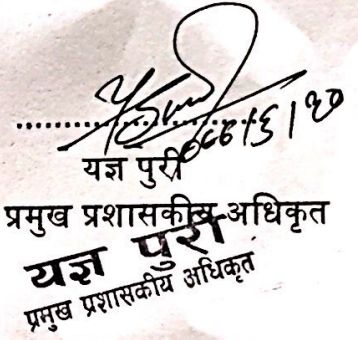 यज्ञ पुरी
प्रमुख प्रशासकीय अधिकृत
यज्ञ पुरी
प्रमुख प्रशासकीय अधिकृत